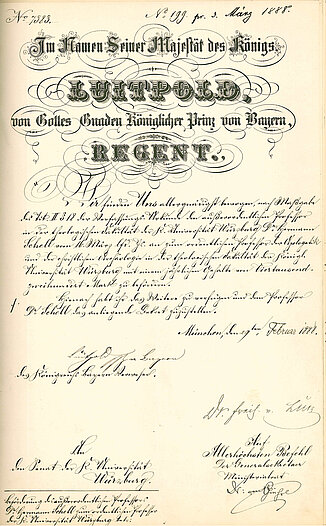 No 7383.
No 199 pr. 3. März 1888.
Im Namen Seiner Majestät des Königs.
LUITPOLD,
von Gottes Gnaden Königlicher Prinz von Bayern,
REGENT.
Wir finden Uns allergnädigst bewogen, nach Maßgabe
des Tit. II § 18 der Verfassungs-Urkunde den außerordentlichen Professor
in der theologischen Facultät der K. Universität Würzburg Dr. Hermann
Schell vom 16. März zum ordentlichen Professor der Apologetik
und der christlichen in der theologischen Facultät der Königl.
Universität Würzburg mit einem jährlichen Gehalte von
Mark zu befördern.
Hienach habt ihr das Weitere zu verfügen und dem Professor
Dr. Schell das anliegende Dekret zuzustellen.
München, den 19ten Februar 1888.
Luitpold Prinz von Bayern
des Königreichs Bayern Verweser.
Dr. Freih. v. Lutz
An
den Senat der K. Universität
Würzburg.
Auf
Allerhöchsten Befehl
Der Generalsekretär
Ministerialrat
Beförderung des außerordentlichen Professors
Dr. Hermann Schell zum ordentlichen Professor
der K. Universität Würzburg betr.